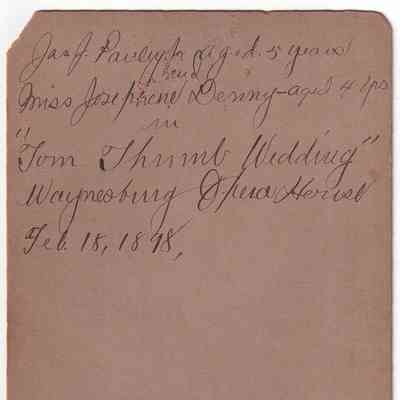 Jas. J. Pauley Jr aged. 5 years
and
Miss Josephine Denny - aged 4 yrs
in
"Tom Thumb Wedding"
Waynesburg Opera House
Feb. 18, 1898,